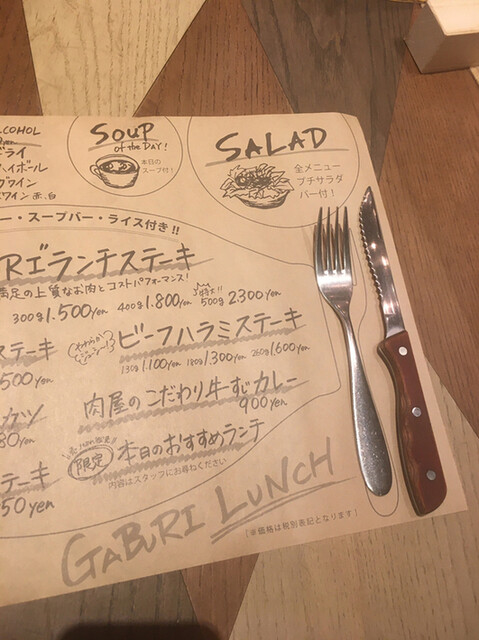 LCOHOL
ドライ
ハイボール
グワイン
ワイン 赤.白
SOUP
of the DAY!
本日の
スープ付!
SALAD
全メニュー
プチサラダ
バー付!
ー・スープバー・ライス付き!!
Rゴランチステーキ
満足の上質なお肉とコストパフォーマンス!
300g 1.500yen 400g 1.800yen 特大!! 500g 2300yen
ステーキ
500yen
ビーフハラミステーキ
130g 1.100yen 180g 1.300yen 260g 1.600yen
カツ
80yen
肉屋のこだわり牛すじカレー
900yen
限定
本日のおすすめランチ
内容はスタッフにお尋ねください
ステーキ
50yen
GABURI LUNCH
[※価格は税別表記となります]